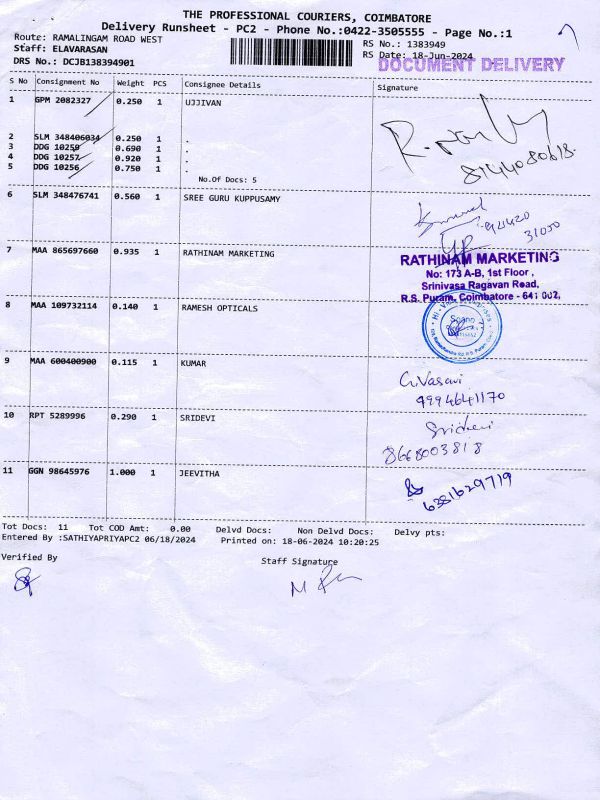 THE PROFESSIONAL COURIERS, COIMBATORE
Delivery Runsheet - PC2 - Phone No.:0422-3505555 - Page No.:1
Route: RAMALINGAM ROAD WEST
RS No.: 1383949
Staff: ELAVARASAN
RS Date: 18-Jun-2024
DRS No.: DCJB138394901
DOCUMENT DELIVERY
S No Consignment No Weight PCS Consignee Details Signature
1 GPM 2082327 0.250 1 UJJIVAN
2 SLM 348406034 0.250 1 .
3 DDG 10259 0.690 1 .
4 DDG 10257 0.920 1 .
5 DDG 10256 0.750 1 .
No.Of Docs: 5
8144080618.
6 SLM 348476741 0.560 1 SREE GURU KUPPUSAMY
31050
7 MAA 865697660 0.935 1 RATHINAM MARKETING
RATHINAM MARKETING
No: 173 A-B, 1st Floor,
Srinivasa Ragavan Road,
R.S. Puram, Coimbatore - 641 002.
8 MAA 109732114 0.140 1 RAMESH OPTICALS
9 MAA 600400900 0.115 1 KUMAR
G.Vasavi
9994641170
10 RPT 5289996 0.290 1 SRIDEVI
Sridevi
8668003818
11 GGN 98645976 1.000 1 JEEVITHA
6381629719
Tot Docs: 11 Tot COD Amt: 0.00 Delvd Docs: Non Delvd Docs: Delvy pts:
Entered By :SATHIYAPRIYAPC2 06/18/2024 Printed on: 18-06-2024 10:20:25
Verified By
Staff Signature